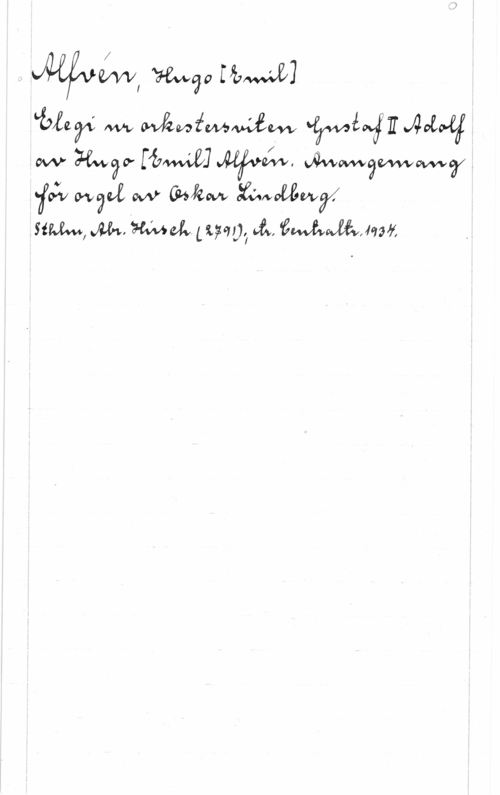 Alfvén, Hugo [Emil]
Elegi ur orkestersviten Gustaf II Adolf
av Hugo [Emil] Alfvén. Arrangemang
för orgel av Oskar Lindberg.
Sthlm, Abr. Hirsch (2791); tr. Centraltr. 1934.